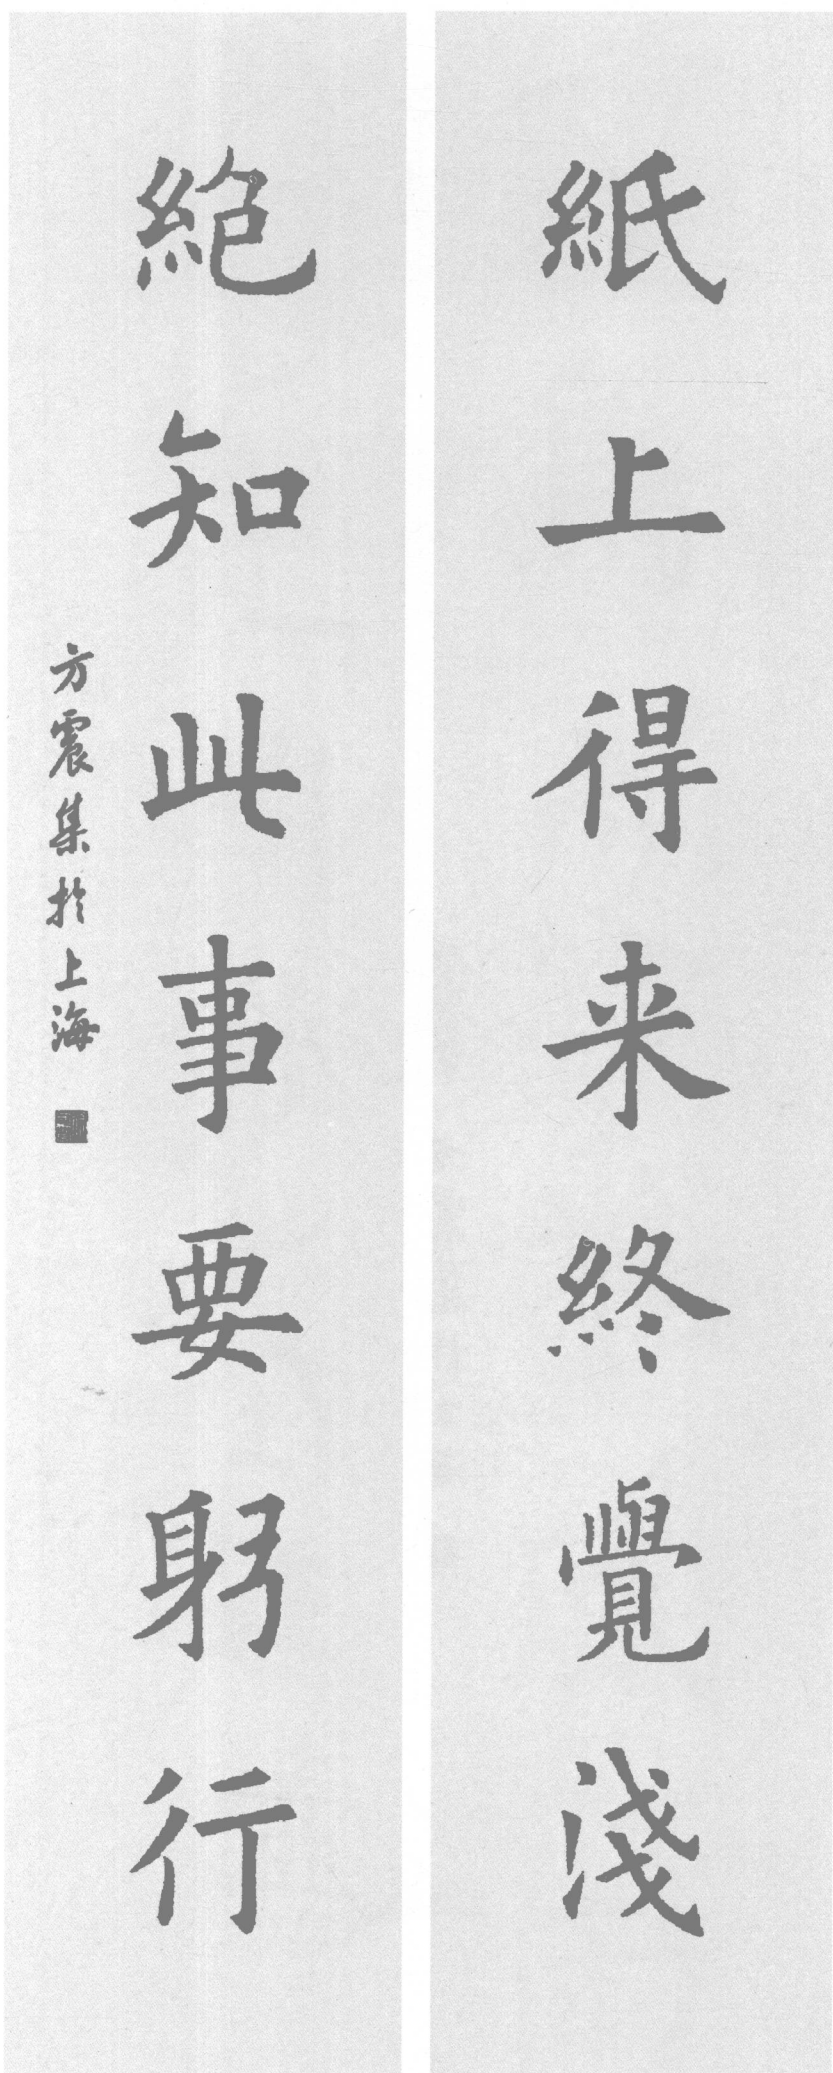 紙上得来終覺淺
絶知此事要躬行
方震集於上海